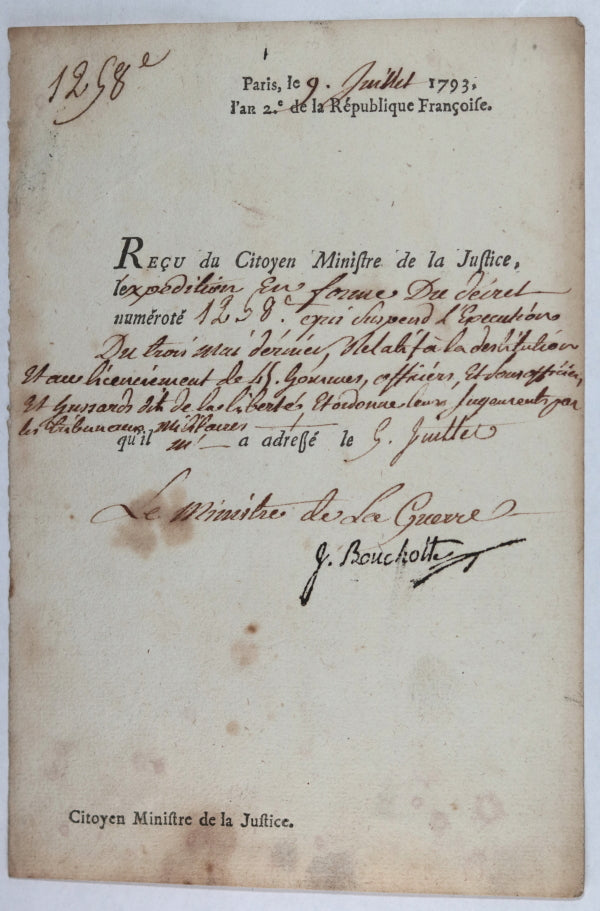 1258e
Paris, le 9. Juillet 1793,
l'an 2.e de la République Françoise.
REÇU du Citoyen Ministre de la Justice,
lexpedition En forme Du décret
numéroté 1258e. qui suspend l'Execution
Du trois mai dernier, Relatif à la destitution
et au licenciement de officiers, Et sous officiers,
Et hussards dit de la liberté, Et ordonne leurs Jugements par
les tribunaux militaires
qu'il m' a adressé le 5. Juillet
Le Ministre de La Guerre
J. Bouchotte
Citoyen Ministre de la Justice.